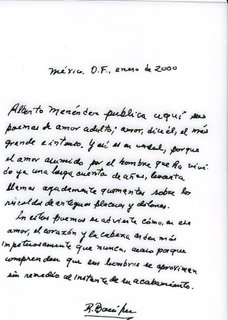 México, D.F., enero de 2000
Alberto Menéndez publica aquí sus
poemas de amor adulto; amor, dice él, el más
grande e intenso. Y así es en verdad, porque
el amor asumido por el hombre que ha vivi-
do ya una larga cuenta de años, levanta
llamas agudamente quemantes sobre los
rescoldos de antiguos placeres y dolores.
En estos poemas se advierte cómo, en ese
amor, el corazón y la cabeza arden más
impetuosamente que nunca, acaso porque
comprenden que sus lumbres se aproximan
sin remedio al instante de su acabamiento.